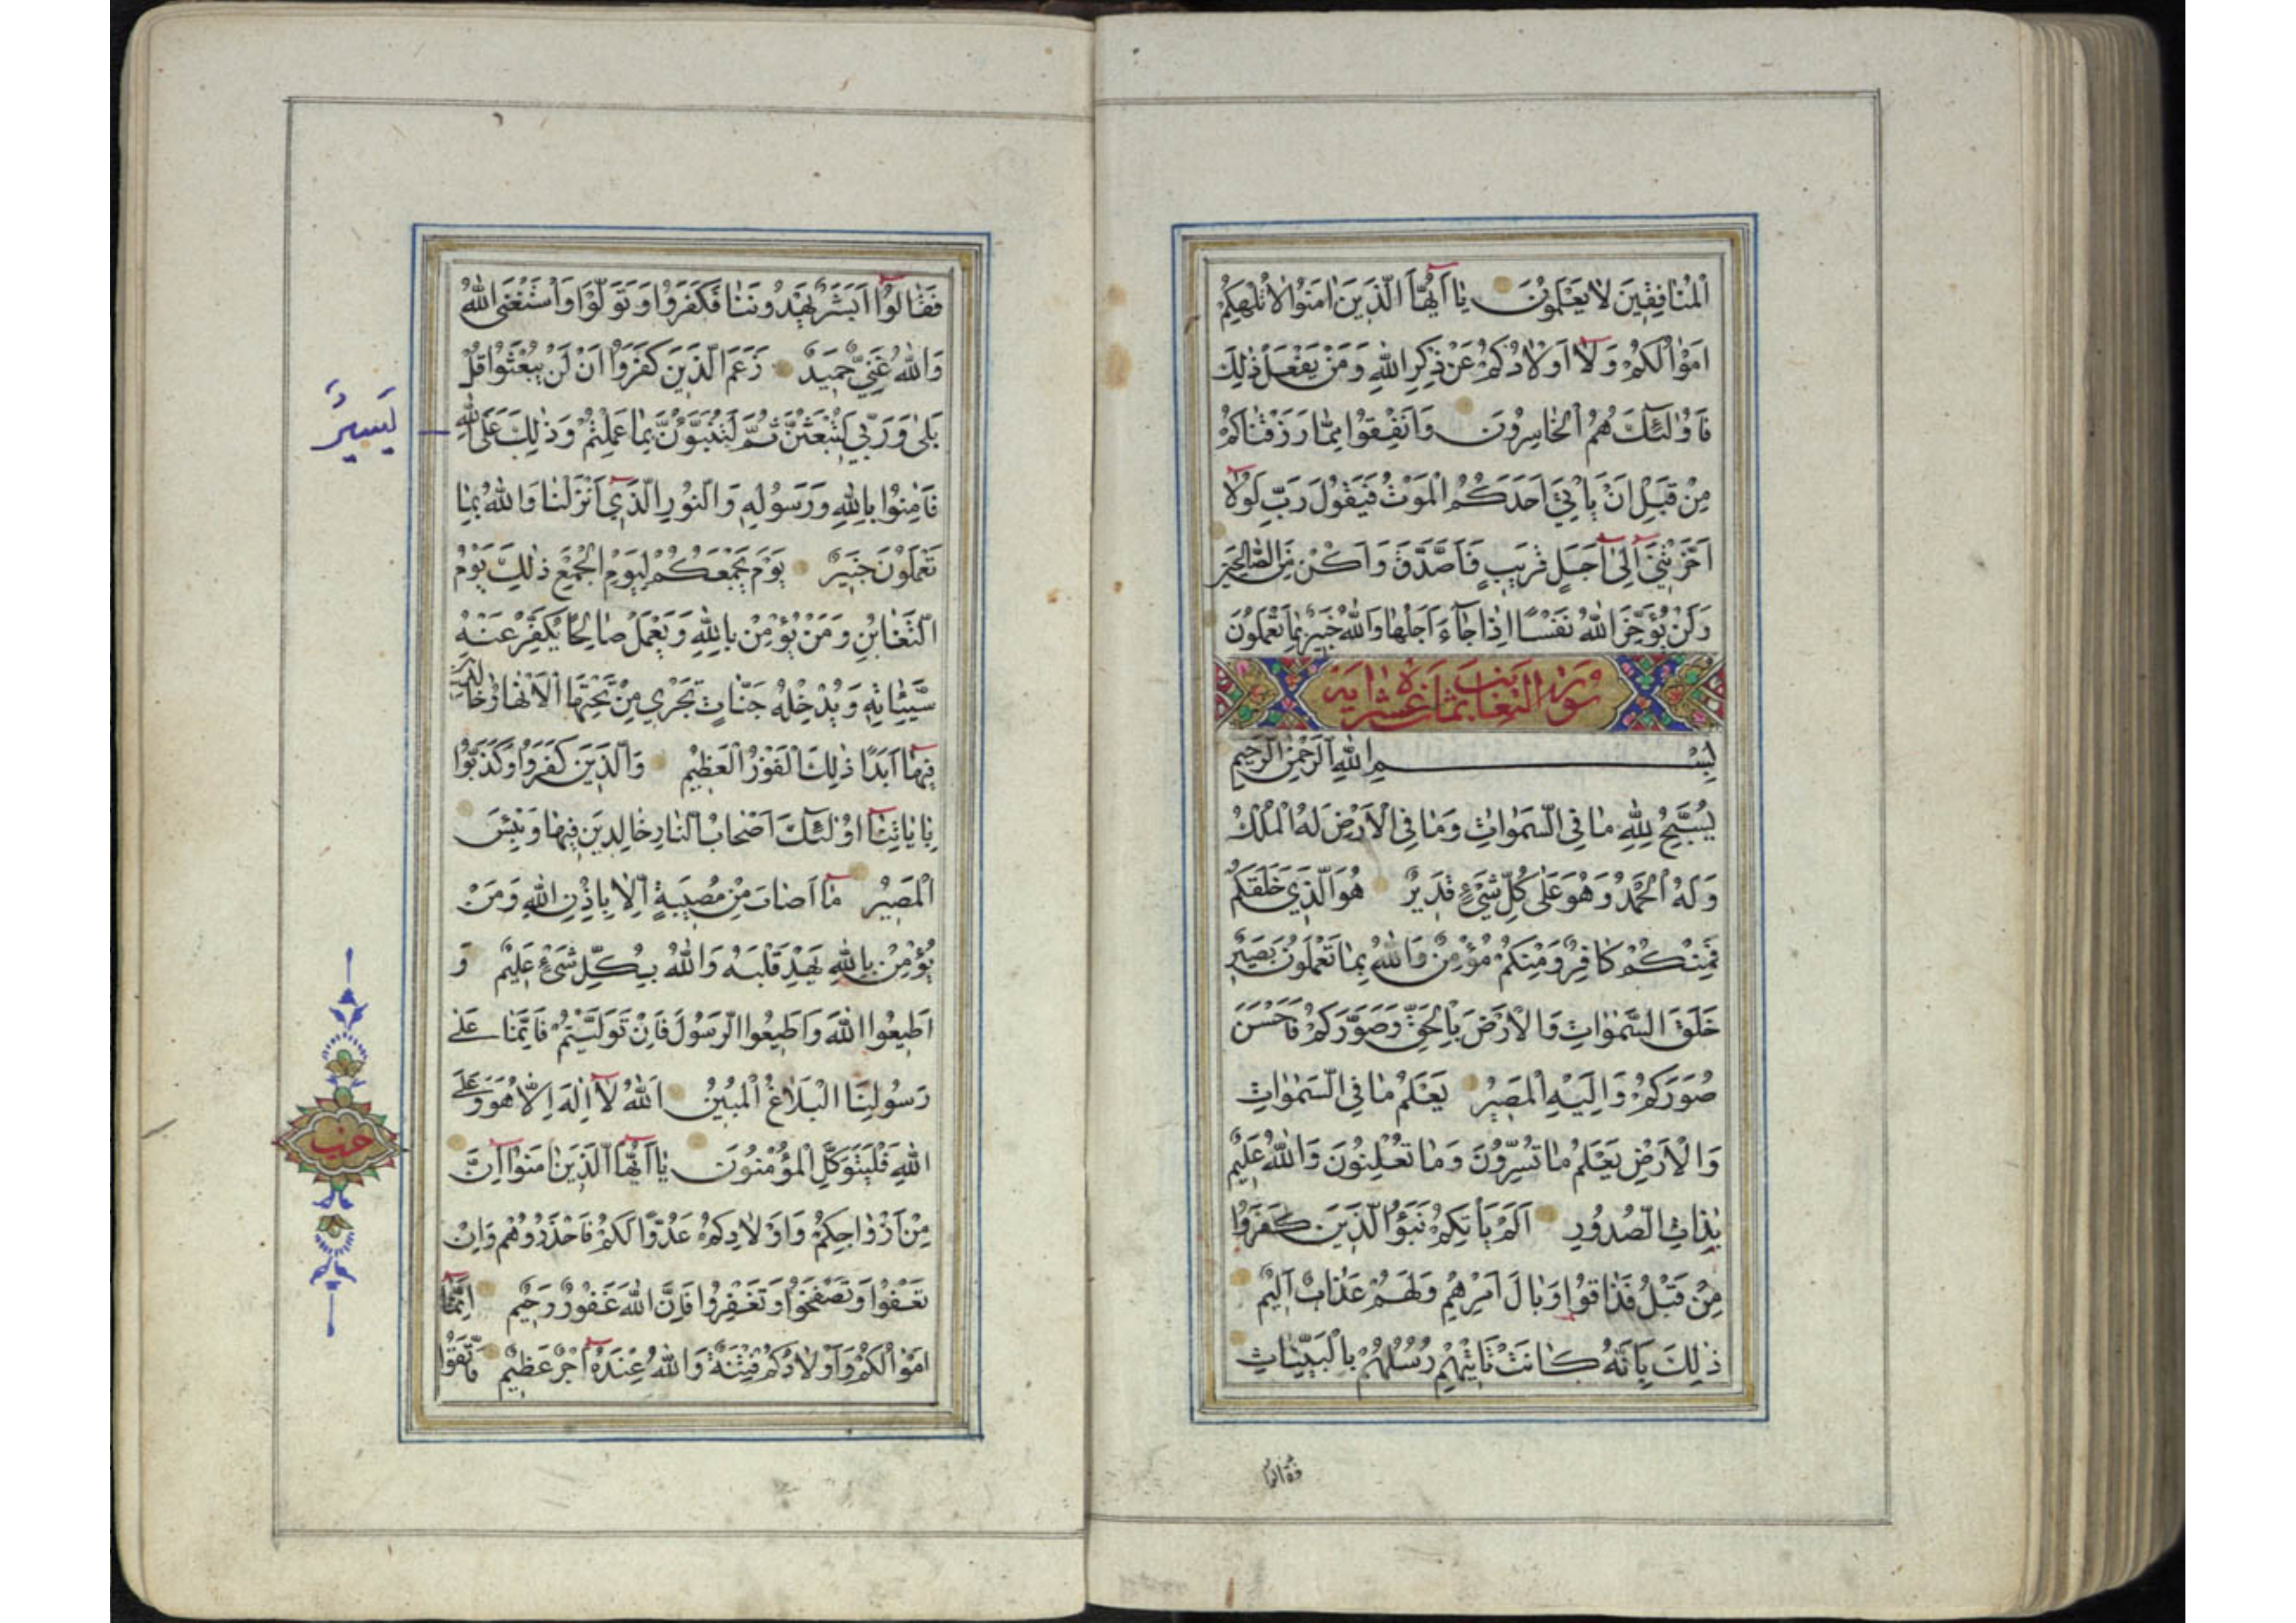 الْمُنَافِقِينَ لَا يَعْلَمُونَ يَا أَيُّهَا الَّذِينَ اٰمَنُوا لَا تُلْهِكُمْ
اَمْوَالُكُمْ وَلَا اَوْلَادُكُمْ عَنْ ذِكْرِ اللّٰهِ وَمَنْ يَفْعَلْ ذٰلِكَ
فَاُولٰئِكَ هُمُ الْخَاسِرُونَ وَاَنْفِقُوا مِمَّا رَزَقْنَاكُمْ
مِنْ قَبْلِ اَنْ يَأْتِيَ اَحَدَكُمُ الْمَوْتُ فَيَقُولَ رَبِّ لَوْلَا
اَخَّرْتَنِي اِلٰى اَجَلٍ قَرِيبٍ فَاَصَّدَّقَ وَاَكُنْ مِنَ الصَّالِحِينَ
وَلَنْ يُؤَخِّرَ اللّٰهُ نَفْسًا اِذَا جَاءَ اَجَلُهَا وَاللّٰهُ خَبِيرٌ بِمَا تَعْمَلُونَ
سورة التغابن ثمان عشرة اية
بِسْمِ اللّٰهِ الرَّحْمٰنِ الرَّحِيمِ
يُسَبِّحُ لِلّٰهِ مَا فِي السَّمٰوَاتِ وَمَا فِي الْاَرْضِ لَهُ الْمُلْكُ
وَلَهُ الْحَمْدُ وَهُوَ عَلٰى كُلِّ شَيْءٍ قَدِيرٌ هُوَ الَّذِي خَلَقَكُمْ
فَمِنْكُمْ كَافِرٌ وَمِنْكُمْ مُؤْمِنٌ وَاللّٰهُ بِمَا تَعْمَلُونَ بَصِيرٌ
خَلَقَ السَّمٰوَاتِ وَالْاَرْضَ بِالْحَقِّ وَصَوَّرَكُمْ فَاَحْسَنَ
صُوَرَكُمْ وَاِلَيْهِ الْمَصِيرُ يَعْلَمُ مَا فِي السَّمٰوَاتِ
وَالْاَرْضِ يَعْلَمُ مَا تُسِرُّونَ وَمَا تُعْلِنُونَ وَاللّٰهُ عَلِيمٌ
بِذَاتِ الصُّدُورِ اَلَمْ يَأْتِكُمْ نَبَؤُا الَّذِينَ كَفَرُوا
مِنْ قَبْلُ فَذَاقُوا وَبَالَ اَمْرِهِمْ وَلَهُمْ عَذَابٌ اَلِيمٌ
ذٰلِكَ بِاَنَّهُ كَانَتْ تَأْتِيهِمْ رُسُلُهُمْ بِالْبَيِّنَاتِ
فقالوا
فَقَالُوا اَبَشَرٌ يَهْدُونَنَا فَكَفَرُوا وَتَوَلَّوْا وَاسْتَغْنَى اللّٰهُ
وَاللّٰهُ غَنِيٌّ حَمِيدٌ زَعَمَ الَّذِينَ كَفَرُوا اَنْ لَنْ يُبْعَثُوا قُلْ
بَلٰى وَرَبِّي لَتُبْعَثُنَّ ثُمَّ لَتُنَبَّؤُنَّ بِمَا عَمِلْتُمْ وَذٰلِكَ عَلَى اللّٰهِ
يَسِيرٌ
فَاٰمِنُوا بِاللّٰهِ وَرَسُولِهِ وَالنُّورِ الَّذِي اَنْزَلْنَا وَاللّٰهُ بِمَا
تَعْمَلُونَ خَبِيرٌ يَوْمَ يَجْمَعُكُمْ لِيَوْمِ الْجَمْعِ ذٰلِكَ يَوْمُ
التَّغَابُنِ وَمَنْ يُؤْمِنْ بِاللّٰهِ وَيَعْمَلْ صَالِحًا يُكَفِّرْ عَنْهُ
سَيِّئَاتِهِ وَيُدْخِلْهُ جَنَّاتٍ تَجْرِي مِنْ تَحْتِهَا الْاَنْهَارُ خَالِدِينَ
فِيهَا اَبَدًا ذٰلِكَ الْفَوْزُ الْعَظِيمُ وَالَّذِينَ كَفَرُوا وَكَذَّبُوا
بِاٰيَاتِنَا اُولٰئِكَ اَصْحَابُ النَّارِ خَالِدِينَ فِيهَا وَبِئْسَ
الْمَصِيرُ مَا اَصَابَ مِنْ مُصِيبَةٍ اِلَّا بِاِذْنِ اللّٰهِ وَمَنْ
يُؤْمِنْ بِاللّٰهِ يَهْدِ قَلْبَهُ وَاللّٰهُ بِكُلِّ شَيْءٍ عَلِيمٌ وَ
اَطِيعُوا اللّٰهَ وَاَطِيعُوا الرَّسُولَ فَاِنْ تَوَلَّيْتُمْ فَاِنَّمَا عَلٰى
رَسُولِنَا الْبَلَاغُ الْمُبِينُ اَللّٰهُ لَا اِلٰهَ اِلَّا هُوَ وَعَلَى
اللّٰهِ فَلْيَتَوَكَّلِ الْمُؤْمِنُونَ يَا اَيُّهَا الَّذِينَ اٰمَنُوا اِنَّ
مِنْ اَزْوَاجِكُمْ وَاَوْلَادِكُمْ عَدُوًّا لَكُمْ فَاحْذَرُوهُمْ وَاِنْ
تَعْفُوا وَتَصْفَحُوا وَتَغْفِرُوا فَاِنَّ اللّٰهَ غَفُورٌ رَحِيمٌ اِنَّمَا
اَمْوَالُكُمْ وَاَوْلَادُكُمْ فِتْنَةٌ وَاللّٰهُ عِنْدَهُ اَجْرٌ عَظِيمٌ فَاتَّقُوا